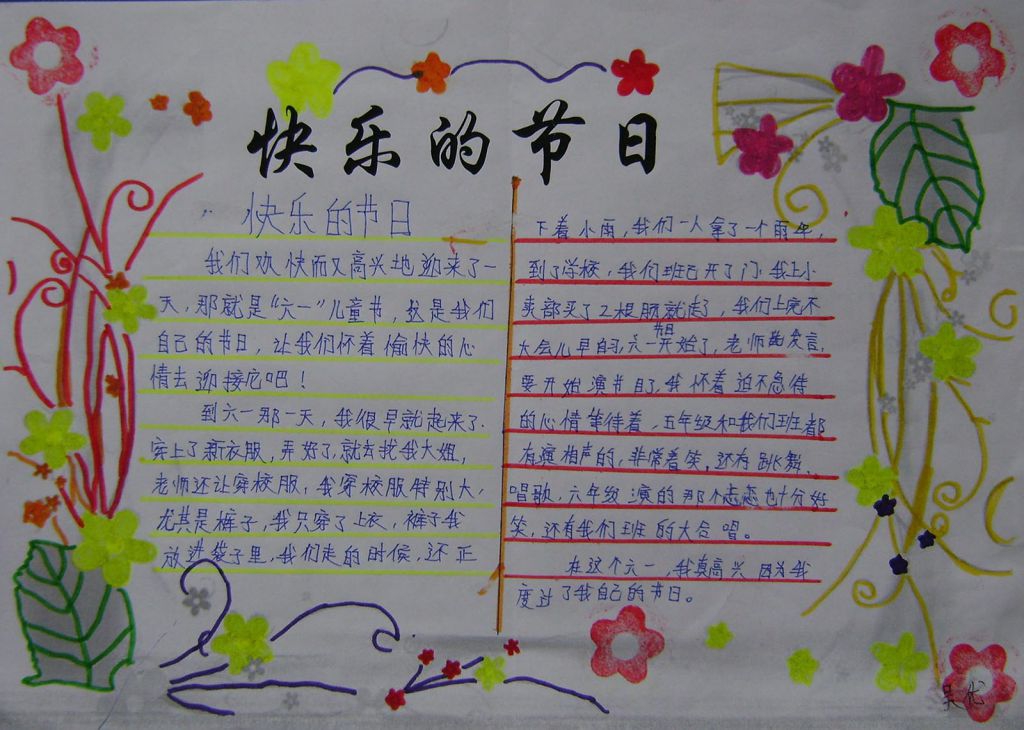 快乐的节日
快乐的节日
我们欢快而又高兴地迎来了一
天，那就是“六一”儿童节，这是我们
自己的节日，让我们怀着愉快的心
情去迎接它吧！
到六一那一天，我很早就起来了.
穿上了新衣服，弄好了，就去找我大姐，
老师还让穿校服，我穿校服特别大，
尤其是裤子，我只穿了上衣，裤子我
放进袋子里，我们走的时候，还正
下着小雨，我们一人拿了一个雨伞，
到了学校，我们班已开了门.我上小
卖部买了2根肠就走了，我们上完不
大会儿早自习，六一节目开始了，老师的发言，
要开始演节目了，我怀着迫不急待
的心情等待着，五年级和我们班都
有演相声的，非常着笑，还有跳舞、
唱歌，六年级演的那个恋恋也十分好
笑，还有我们班的大合唱。
在这个六一，我真高兴因为我
度过了我自己的节日。
吴优